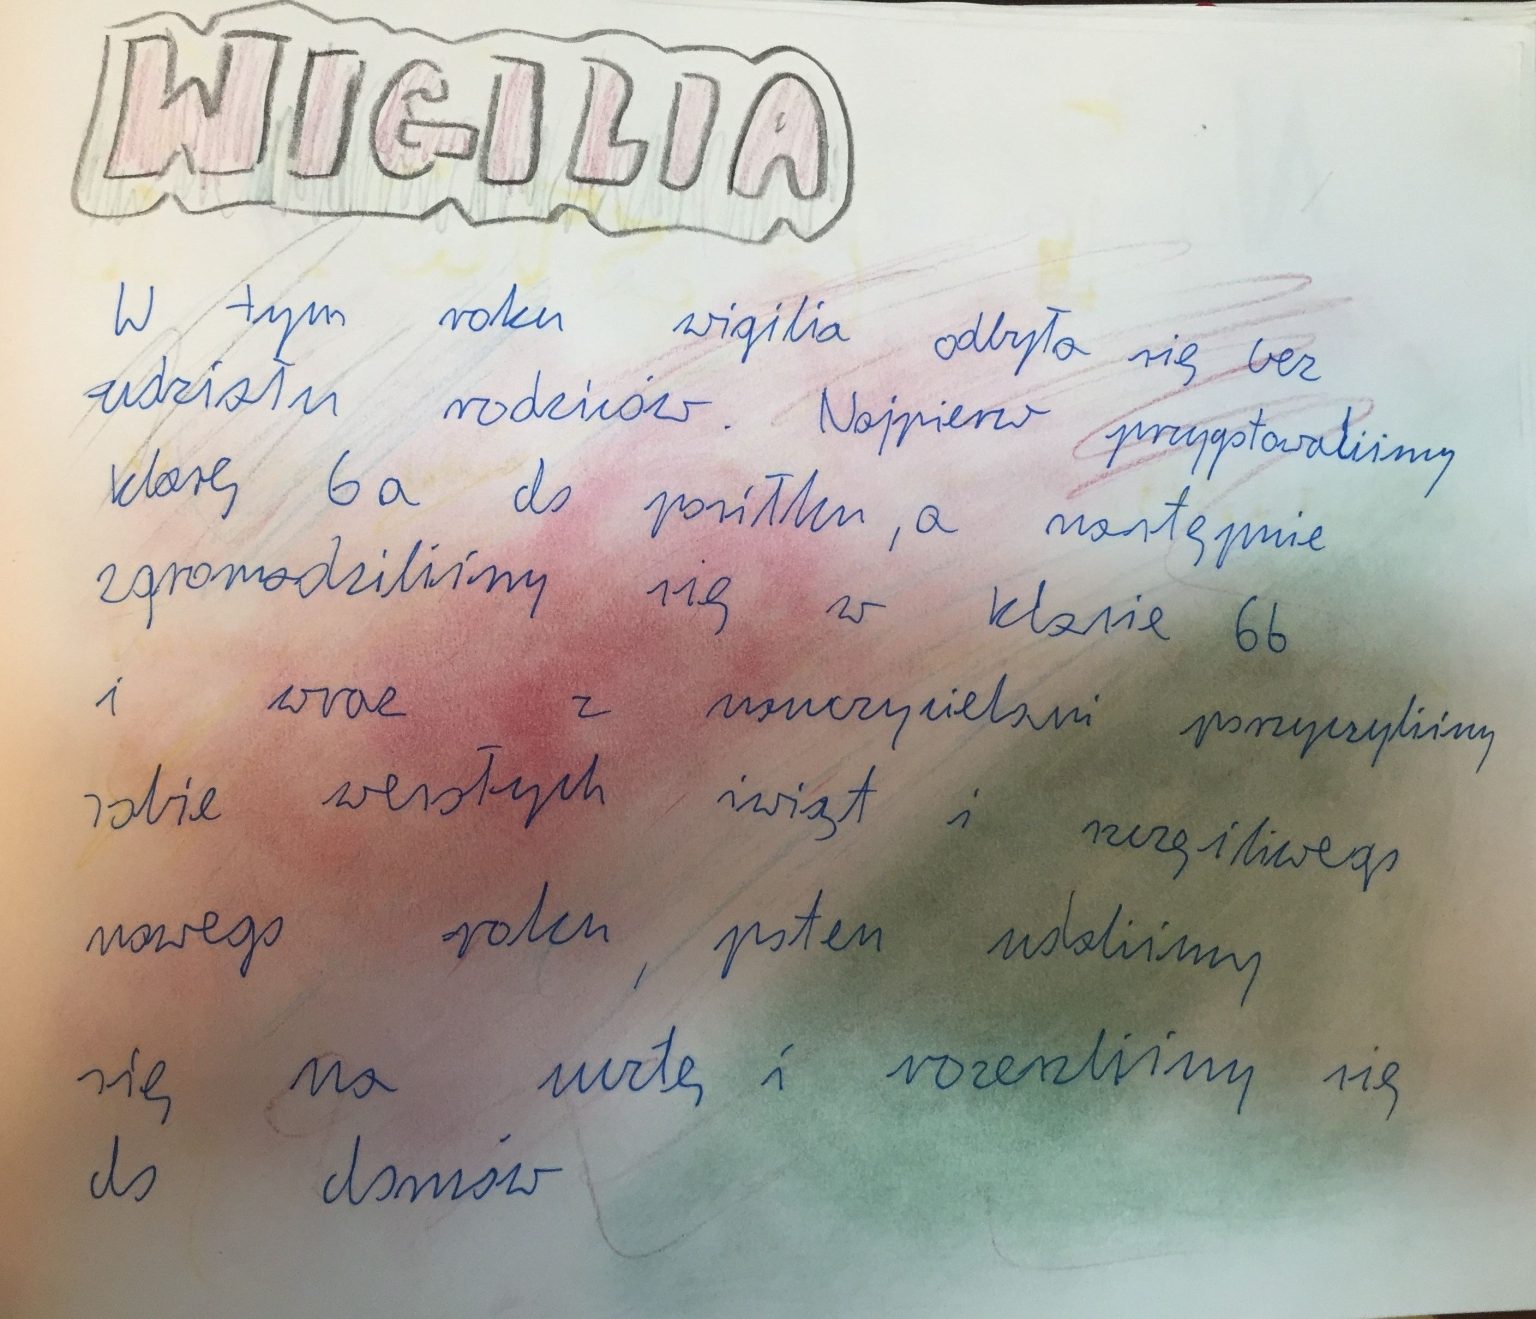 WIGILIA
W tym roku wigilia odbyła się bez
udziału rodziców. Najpierw przygotowaliśmy
klasę 6a do posiłku, a następnie
zgromadziliśmy się w klasie 6b
i wraz z nauczycielami poczyczyliśmy
sobie wesołych świąt i szczęśliwego
nowego roku, potem udaliśmy
się na ucztę i rozeszliśmy się
do domów